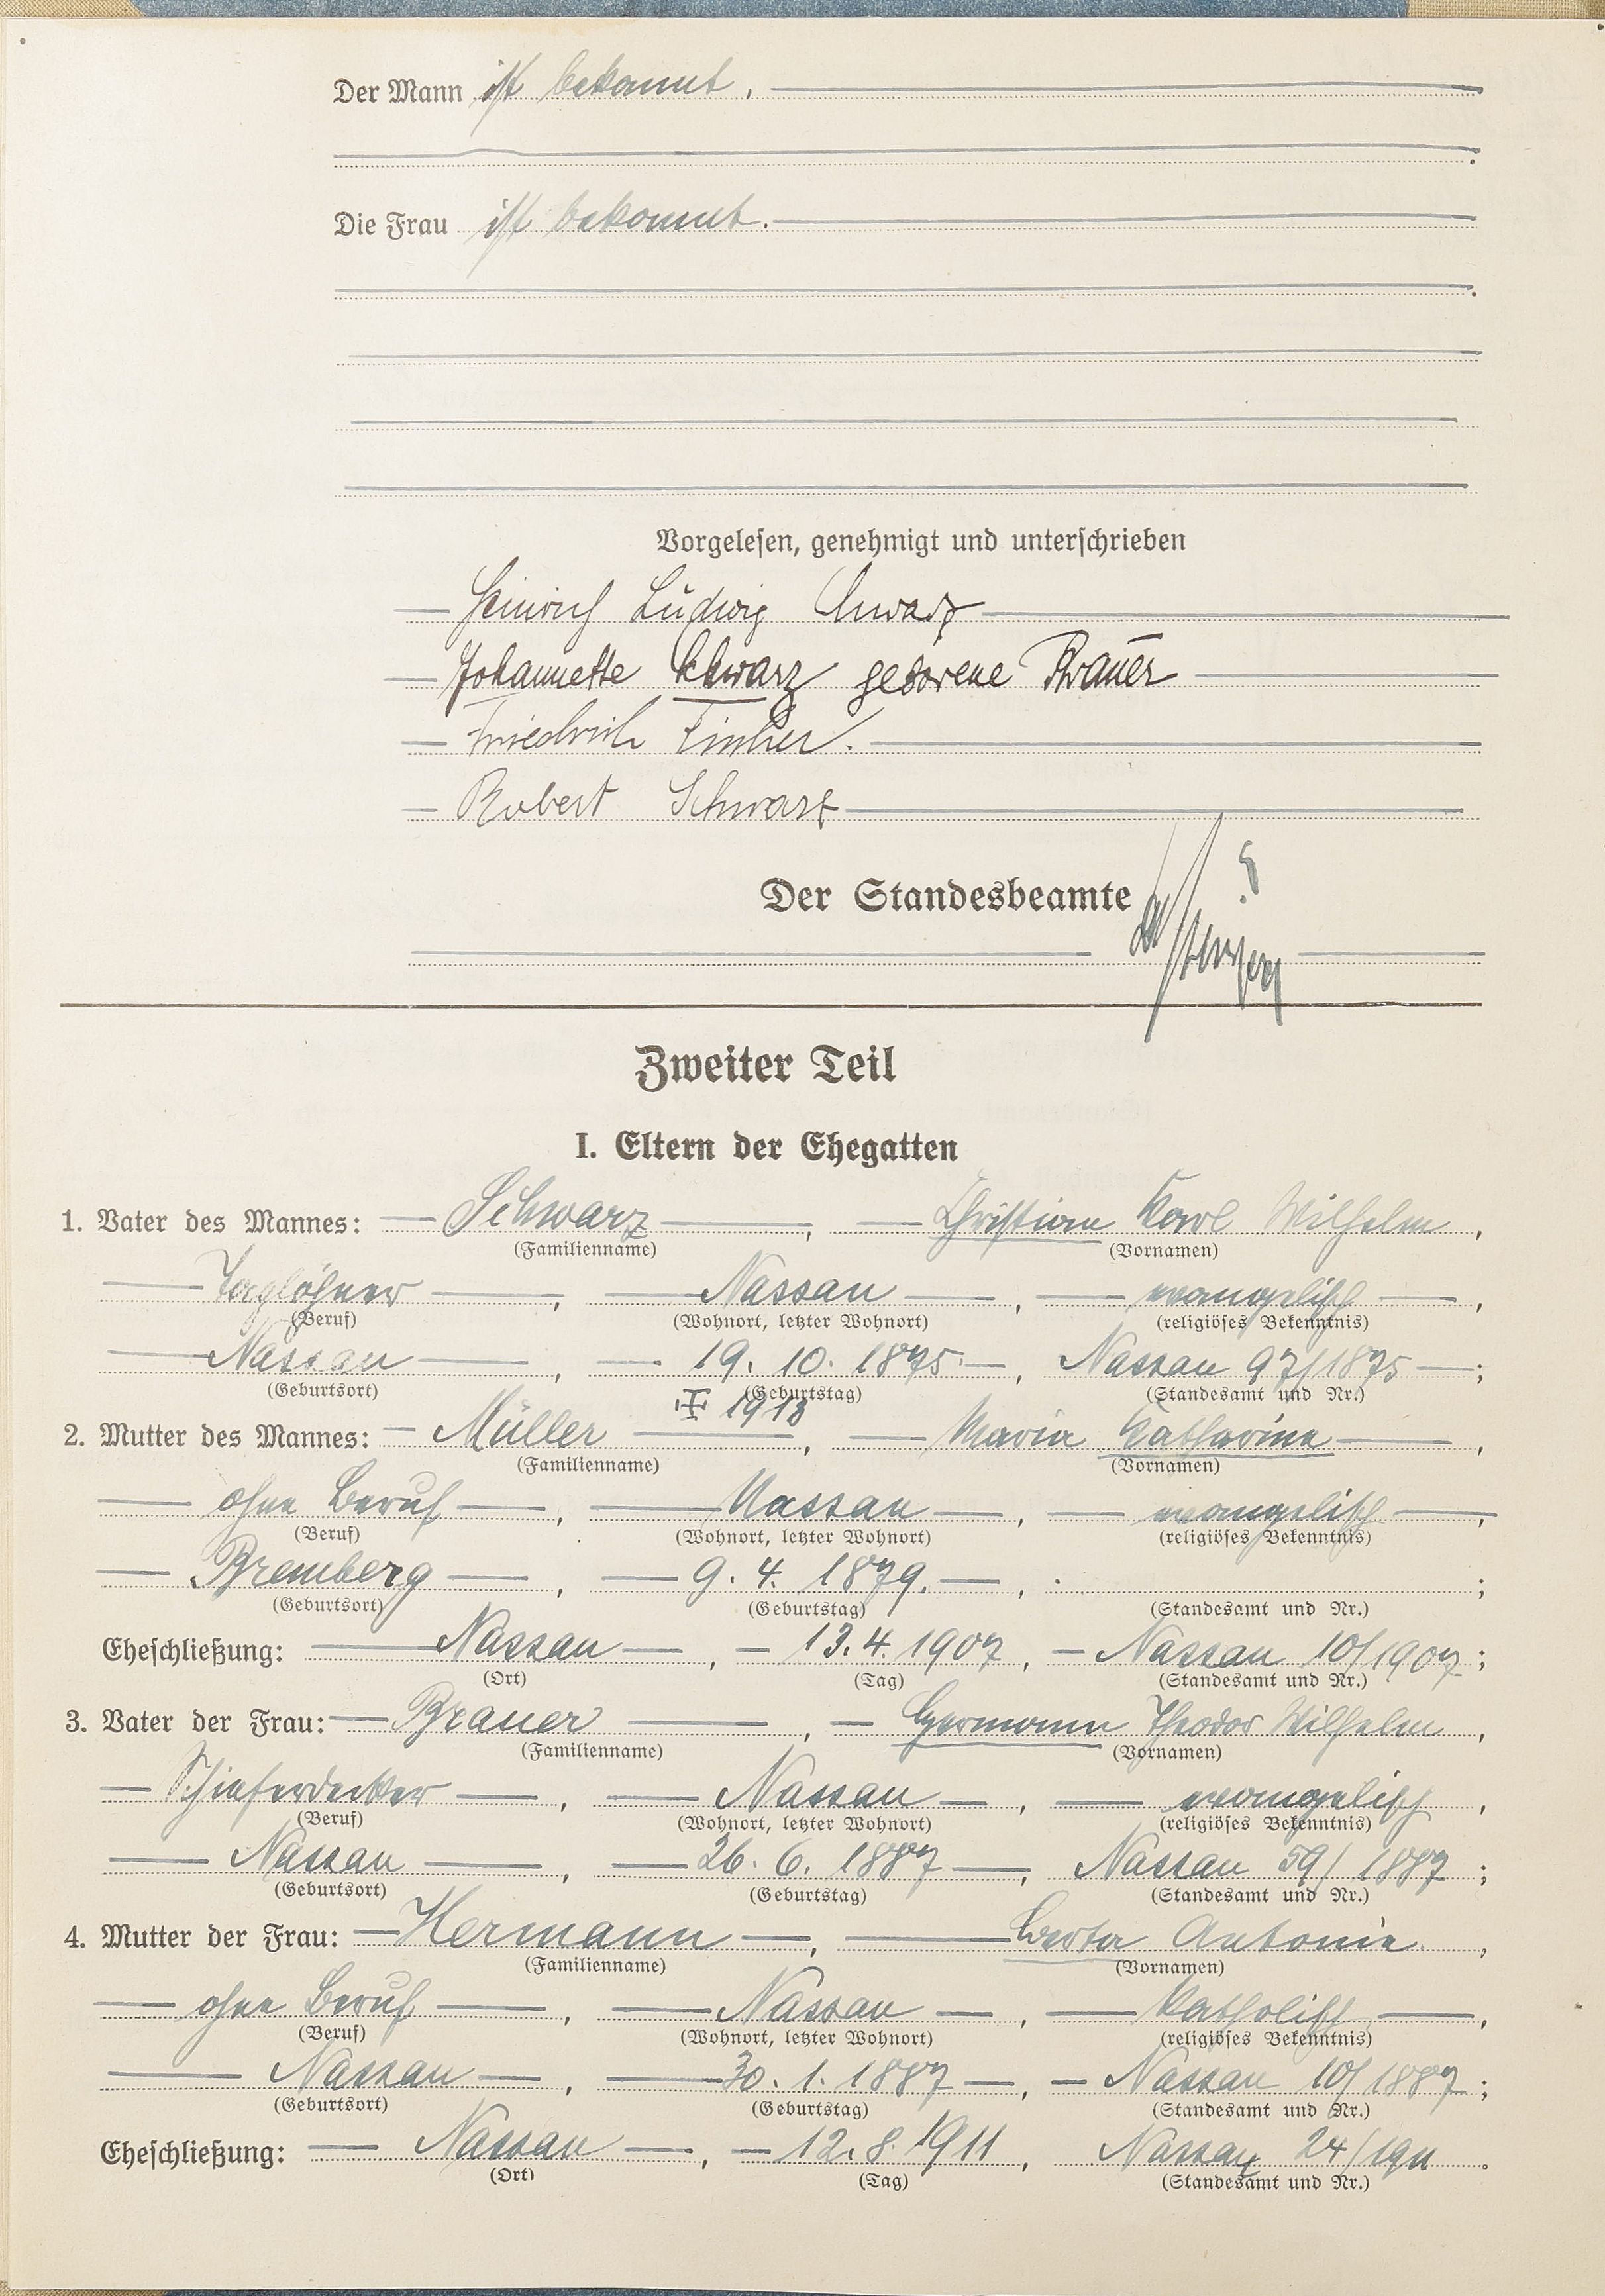 Der Mann ist bekannt.
Die Frau ist bekannt.
Vorgelesen, genehmigt und unterschrieben
Heinrich Ludwig Schwarz
Johannette Schwarz geborene Brauer
Friedrich
Robert Schwarz
Der Standesbeamte
Zweiter Teil
I. Eltern der Ehegatten
1. Vater des Mannes: Schwarz, Christian Karl Wilhelm,
(Familienname) (Vornamen)
Taglöhner, Nassau, evangelisch,
(Beruf) (Wohnort, letzter Wohnort) (religiöses Bekenntnis)
Nassau, 19. 10. 1875, Nassau 97/1875;
(Geburtsort) (Geburtstag) (Standesamt und Nr.)
1918
2. Mutter des Mannes: Müller, Maria Katharina,
(Familienname) (Vornamen)
ohne Beruf, Nassau, evangelisch,
(Beruf) (Wohnort, letzter Wohnort) (religiöses Bekenntnis)
Bremberg, 9. 4. 1879., ;
(Geburtsort) (Geburtstag) (Standesamt und Nr.)
Eheschließung: Nassau, 13. 4. 1907, Nassau 10/1907;
(Ort) (Tag) (Standesamt und Nr.)
3. Vater der Frau: Brauer, Hermann Theodor Wilhelm,
(Familienname) (Vornamen)
Schieferdecker, Nassau, evangelisch,
(Beruf) (Wohnort, letzter Wohnort) (religiöses Bekenntnis)
Nassau, 26. 6. 1887, Nassau 59/1887;
(Geburtsort) (Geburtstag) (Standesamt und Nr.)
4. Mutter der Frau: Hermann, Berta Antonie,
(Familienname) (Vornamen)
ohne Beruf, Nassau, katholisch,
(Beruf) (Wohnort, letzter Wohnort) (religiöses Bekenntnis)
Nassau, 30. 1. 1887, Nassau 10/1887;
(Geburtsort) (Geburtstag) (Standesamt und Nr.)
Eheschließung: Nassau, 12. 8. 1911, Nassau 24/1911.
(Ort) (Tag) (Standesamt und Nr.)